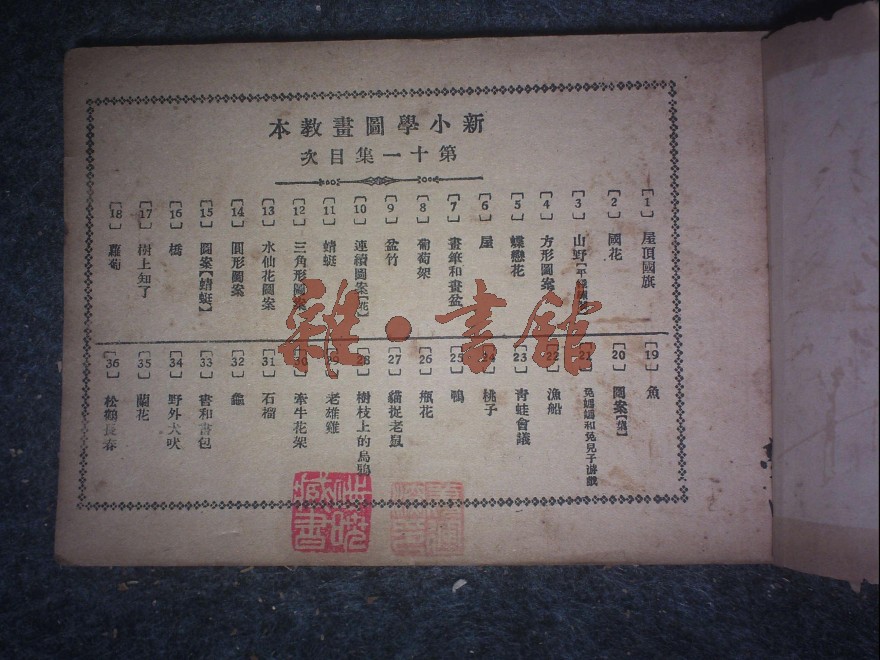 新小學圖畫教本
第十一集目次
[1] 屋頂國旗
[2] 國花
[3] 山野
[4] 方形圖案
[5] 蝶戀花
[6] 屋
[7] 畫筆和畫盆
[8] 葡萄架
[9] 盆竹
[10] 連續圖案[花]
[11] 蜻蜓
[12] 三角形圖案
[13] 水仙花圖案
[14] 圓形圖案
[15] 圖案[蜻蜓]
[16] 橋
[17] 樹上知了
[18] 蘿蔔
[19] 魚
[20] 圖案[葉]
[21] 兔媽媽和兔兒子游戲
[22] 漁船
[23] 青蛙會議
[24] 桃子
[25] 鴨
[26] 瓶花
[27] 貓捉老鼠
[28] 樹枝上的烏鴉
[29] 老雄雞
[30] 牽牛花架
[31] 石榴
[32] 龜
[33] 書和書包
[34] 野外犬吠
[35] 蘭花
[36] 松鶴長春
雜·書館